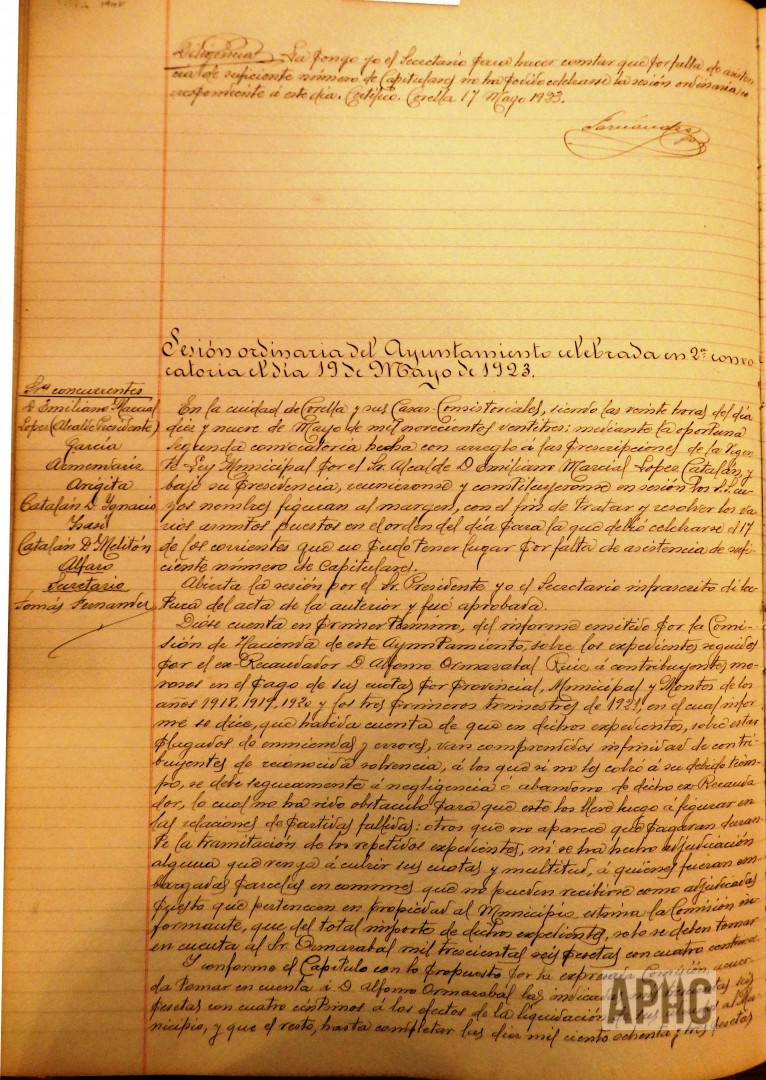 Diligencia. La pongo yo el Secretario para hacer constar que por falta de asisten-
cia de suficiente número de Capitulares no ha podido celebrarse la sesión ordinaria co-
rrespondiente á este día. Certifico. Corella 17 Mayo 1923.
Fernández
Sesión ordinaria del Ayuntamiento celebrada en 2ª convo
catoria el día 19 de Mayo de 1923.
Sres concurrentes
D. Emiliano Marcial
López (Alcalde Presidente)
García
Armendariz
Angita
Catalán D. Ignacio
Isasi
Catalán D. Melitón
Alfaro
Secretario
Tomás Fernandez
En la ciudad de Corella y sus Casas Consistoriales, siendo las veinte horas del día
diez y nueve de Mayo de mil novecientos ventitres: mediante la oportuna
segunda convocatoria hecha con arreglo á las prescripciones de la vigen-
te Ley Municipal por el Sr. Alcalde D. Emiliano Marcial López Catalán y
bajo su Presidencia, reunieronse y constituyeronse en sesión los S.S. cu-
yos nombres figuran al margen, con el fin de tratar y resolver los va-
rios asuntos puestos en el orden del día para la que debió celebrarse el 17
de los corrientes que no pudo tener lugar por falta de asistencia de sufi-
ciente número de Capitulares.
Abierta la sesión por el Sr. Presidente yo el Secretario infrascrito di lec-
tura del acta de la anterior y fué aprobada.
Dióse cuenta en primer término, del informe emitido por la Comi-
sión de Hacienda de este Ayuntamiento, sobre los expedientes seguidos
por el ex-Recaudador D. Alfonso Ormazabal Ruiz á contribuyentes mo-
rosos en el pago de sus cuotas por Provincial, Municipal y Montes de los
años 1918, 1919, 1920 y los tres primeros trimestres de 1921, en el cual infor-
me se dice, que habida cuenta de que en dichos expedientes, sobre estar
plagados de enmiendas y errores, van comprendidos infinidad de contri-
buyentes de reconocida solvencia, á los que si no les cobró á su debido tiem-
po, se debe seguramente á negligencia ó abandono de dicho ex-Recauda-
dor, lo cual no ha sido obstáculo para que este los lleve luego á figurar en
las relaciones de partidas fallidas: otros que no aparece que pagaran duran-
te la tramitación de los repetidos expedientes, ni se ha hecho adjudicación
alguna que venga á cubrir sus cuotas y multitud, á quiénes fueran em-
bargadas parcelas en comunes que no pueden recibirse como adjudicadas
puesto que pertenecen en propiedad al Municipio, estima la Comisión in-
formante, que del total importe de dichos expedientes, solo se deben tomar
en cuenta al Sr. Ormazabal mil trescientas seis pesetas con cuatro céntimos.
Y conforme el Capítulo con lo propuesto por la expresada Comisión, acuer-
da tomar en cuenta á D. Alfonso Ormazabal las indicadas mil trescientas seis
pesetas con cuatro céntimos á los efectos de la liquidación de sus al Mu-
nicipio, y que el resto, hasta completar las diez mil ciento ochenta y tres pesetas
APHC